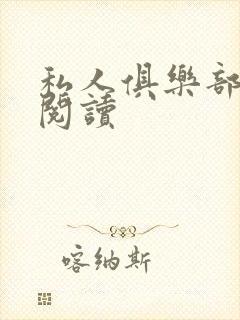 私人俱樂部
閱讀
喀納斯